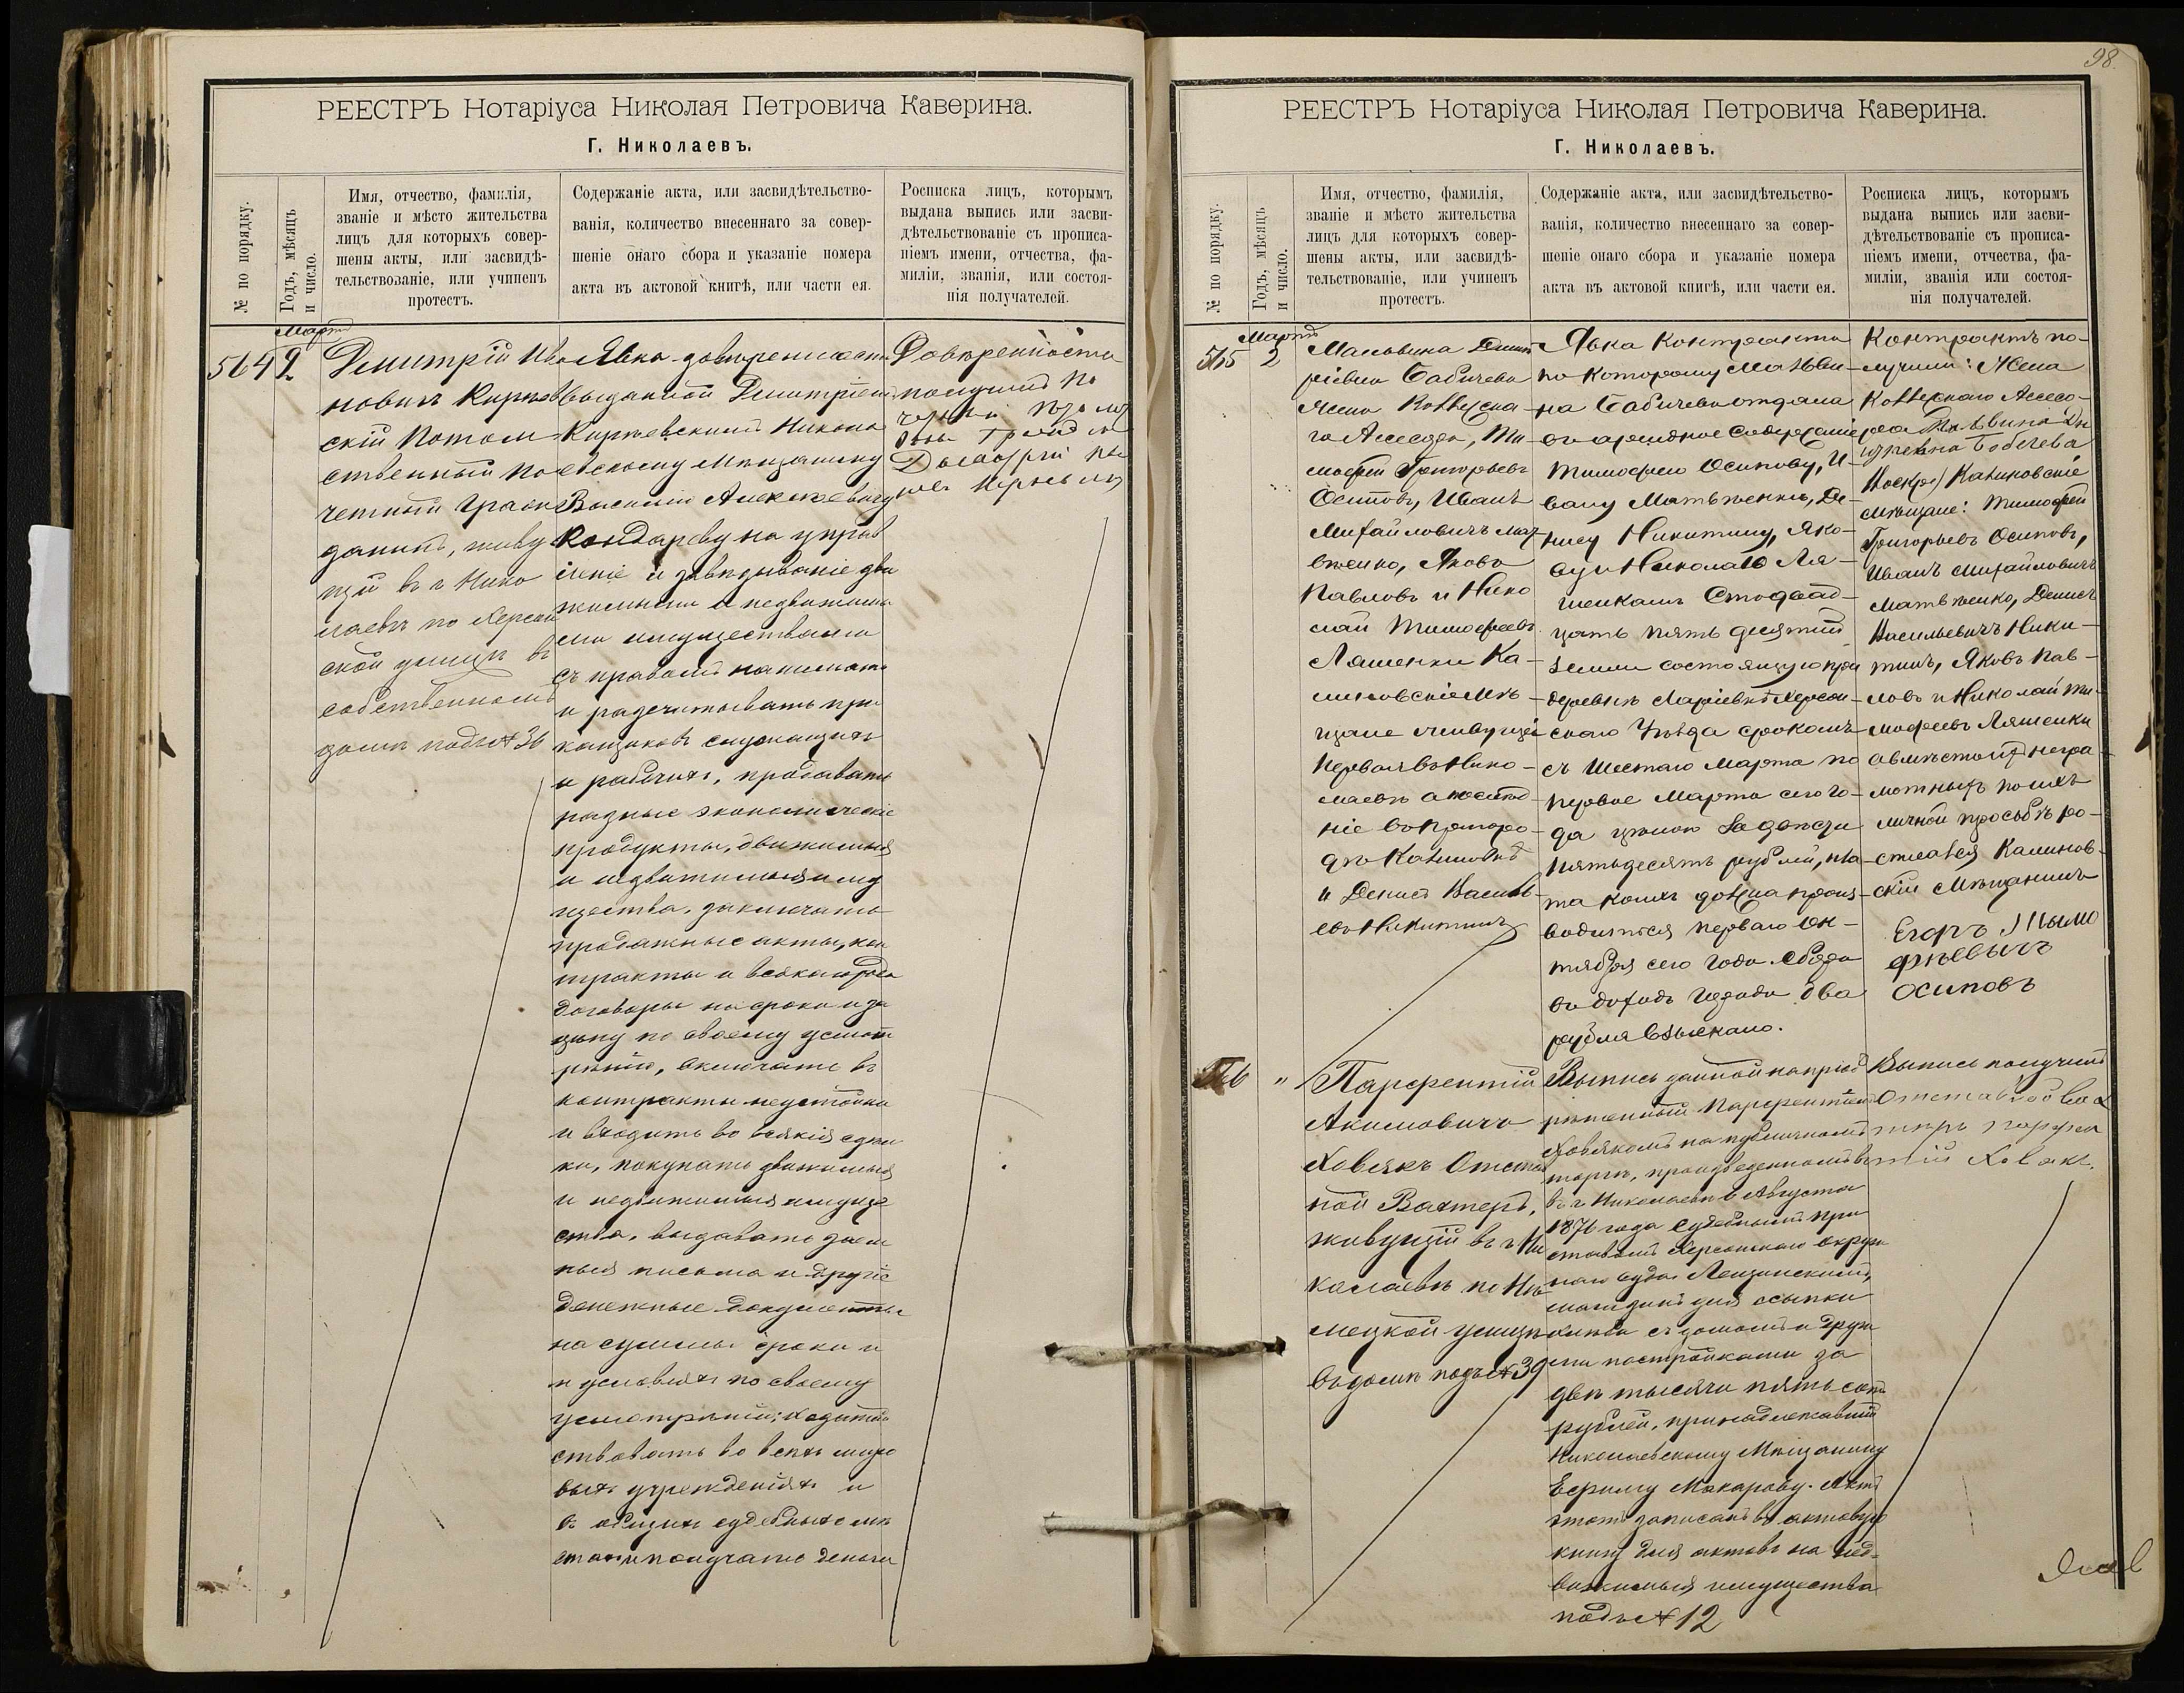 РЕЕСТРЪ Нотаріуса Николая Петровича Каверина.
Г. Николаевъ.
№ по порядку.
Годъ, мѣсяцъ
и число.
Имя, отчество, фамилія,
званіе и мѣсто жительства
лицъ для которыхъ совер-
шены акты, или засвидѣ-
тельствованіе, или учиненъ
протестъ.
Содержаніе акта, или засвидѣтельство-
ванія, количество внесеннаго за совер-
шеніе онаго сбора и указаніе номера
акта въ актовой книгѣ, или части ея.
Росписка лицъ, которымъ
выдана выпись или засви-
дѣтельствованіе съ прописа-
ніемъ имени, отчества, фа-
миліи, званія, или состоя-
нія получателей.
Мартъ
564 2
Димитрій Ива
новичъ
скій Потом
ственный По
четный Граж
данинъ, живу
щій въ г Нико
лаевѣ по Херсон
ской улицѣ въ
собственномъ
домѣ подъ № 36
Явка довѣренности
выданной Димитріемъ
Николаевскому Мѣщанину
Василію Алексѣевичу
Кондареву на управ
леніе и завѣдываніе дви
жимыми и недвижимы
ми имуществами
съ правомъ нанимать
и расчитывать при
кащиковъ служащихъ
и рабочихъ, продавать
разные экономическіе
продукты, движимыя
и недвижимыя иму
щества, заключать
продажные акты, кон
тракты и всякаго рода
договоры на сроки и за
цѣну по своему усмот
рѣнію, включать въ
контракты неустойки
и входить во всякія сдѣл
ки, покупать движимыя
и недвижимыя имуще
ства, выдавать заем
ныя письма и другіе
денежные документы
на суммы сроки и
и условіяхъ по своему
усмотрѣнію; ходатай
ствовать во всѣхъ миро
выхъ учрежденіяхъ и
въ общихъ судебныхъ мѣ
стахъ и получать деньги
Довѣренность
получилъ
98.
РЕЕСТРЪ Нотаріуса Николая Петровича Каверина.
Г. Николаевъ.
№ по порядку.
Годъ, мѣсяцъ
и число.
Имя, отчество, фамилія,
званіе и мѣсто жительства
лицъ для которыхъ совер-
шены акты, или засвидѣ-
тельствованіе, или учиненъ
протестъ.
Содержаніе акта, или засвидѣтельство-
ванія, количество внесеннаго за совер-
шеніе онаго сбора и указаніе номера
акта въ актовой книгѣ, или части ея.
Росписка лицъ, которымъ
выдана выпись или засви-
дѣтельствованіе съ прописа-
ніемъ имени, отчества, фа-
миліи, званія или состоя-
нія получателей.
Мартъ
565 2
Мальвина Дмит
ріевна Бабичева
жена Коллежска
го Асесора, Ти
мофей Григорьевъ
Осиповъ, Иванъ
Михайловичъ Мат
вѣенко, Яковъ
Павловъ и Нико
лай Тимофеевъ
Ляшенки Ка-
линовскіе Мѣ-
щане живущіе
первая въ Нико-
лаевѣ а послѣд-
ніе въ пригоро-
дѣ Калиновкѣ
и Денисъ Василь
евъ Никитинъ
Явка Контракта
по которому Мальви-
на Бабичева отдала
въ арендное содержаніе
Тимофею Осипову, И-
вану Матвѣенкѣ, Де-
нису Никитину, Яко-
ву и Николаю Ля-
шенкамъ Стодвад-
цать пять десятинъ
земли состоящую при
деревнѣ Маріевкѣ Херсон-
скаго Уѣзда срокомъ
съ Шестаго Марта по
первое Марта сего го-
да цѣною за
пятьдесятъ рублей, пла-
та коихъ должна произ-
водится перваго Ок-
тября сего года. Сбора
въ доходъ города два
рубля взыскано.
Контрактъ по-
лучили: Жена
Коллежскаго Ассесо-
ра Мальвина
Бабичева
Калиновскіе
Мѣщане: Тимофей
Григорьевъ Осиповъ,
Иванъ Михайловичъ
Матвѣенко, Денисъ
Васильевичъ Ники-
тинъ, Яковъ Пав-
ловъ и Николай Ти-
мофеевъ Ляшенки
а вмѣсто ихъ негра-
мотныхъ по ихъ
личной просьбѣ ро-
списался Калинов-
скій Мѣщанинъ
Егоръ Тымо
фѣевычъ
Осиповъ
566 "
Парфентій
Акимовичъ
Ховякъ Отстав
ной Вахтеръ,
живущій въ г Ни
колаевѣ по Нѣ
мецкой улицѣ
въ домѣ подъ № 39
Выпись данной на пріоб
рѣтенный Парфентіемъ
Ховякомъ на публичномъ
торгѣ, произведенномъ
въ г Николаевѣ 6 Августа
1876 года Судебнымъ при
ставомъ Херсонскаго окруж
наго суда
магазинъ для ссыпки
хлѣба съ домомъ и други
ми постройками за
двѣ тысячи пять сотъ
рублей, принадлежавшій
Николаевскому Мѣщанину
Ефиму Макарову. Актъ
этотъ записанъ въ актовую
книгу для актовъ на нед-
вижимыя имущества
подъ № 12
Выпись получилъ
Отставной вах
теръ Парфен
тій Ховякъ.